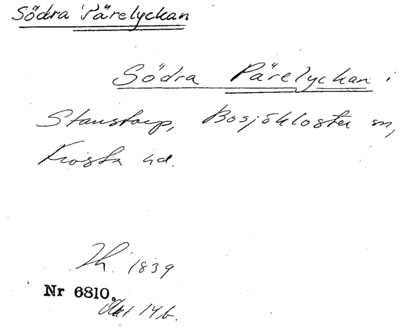 Södra Pärelyckan
Södra Pärelyckan i
Stanstorp, Bosjökloster sn,
Frosta hd.
Lh. 1839
Nr 6810.
Akt 146.